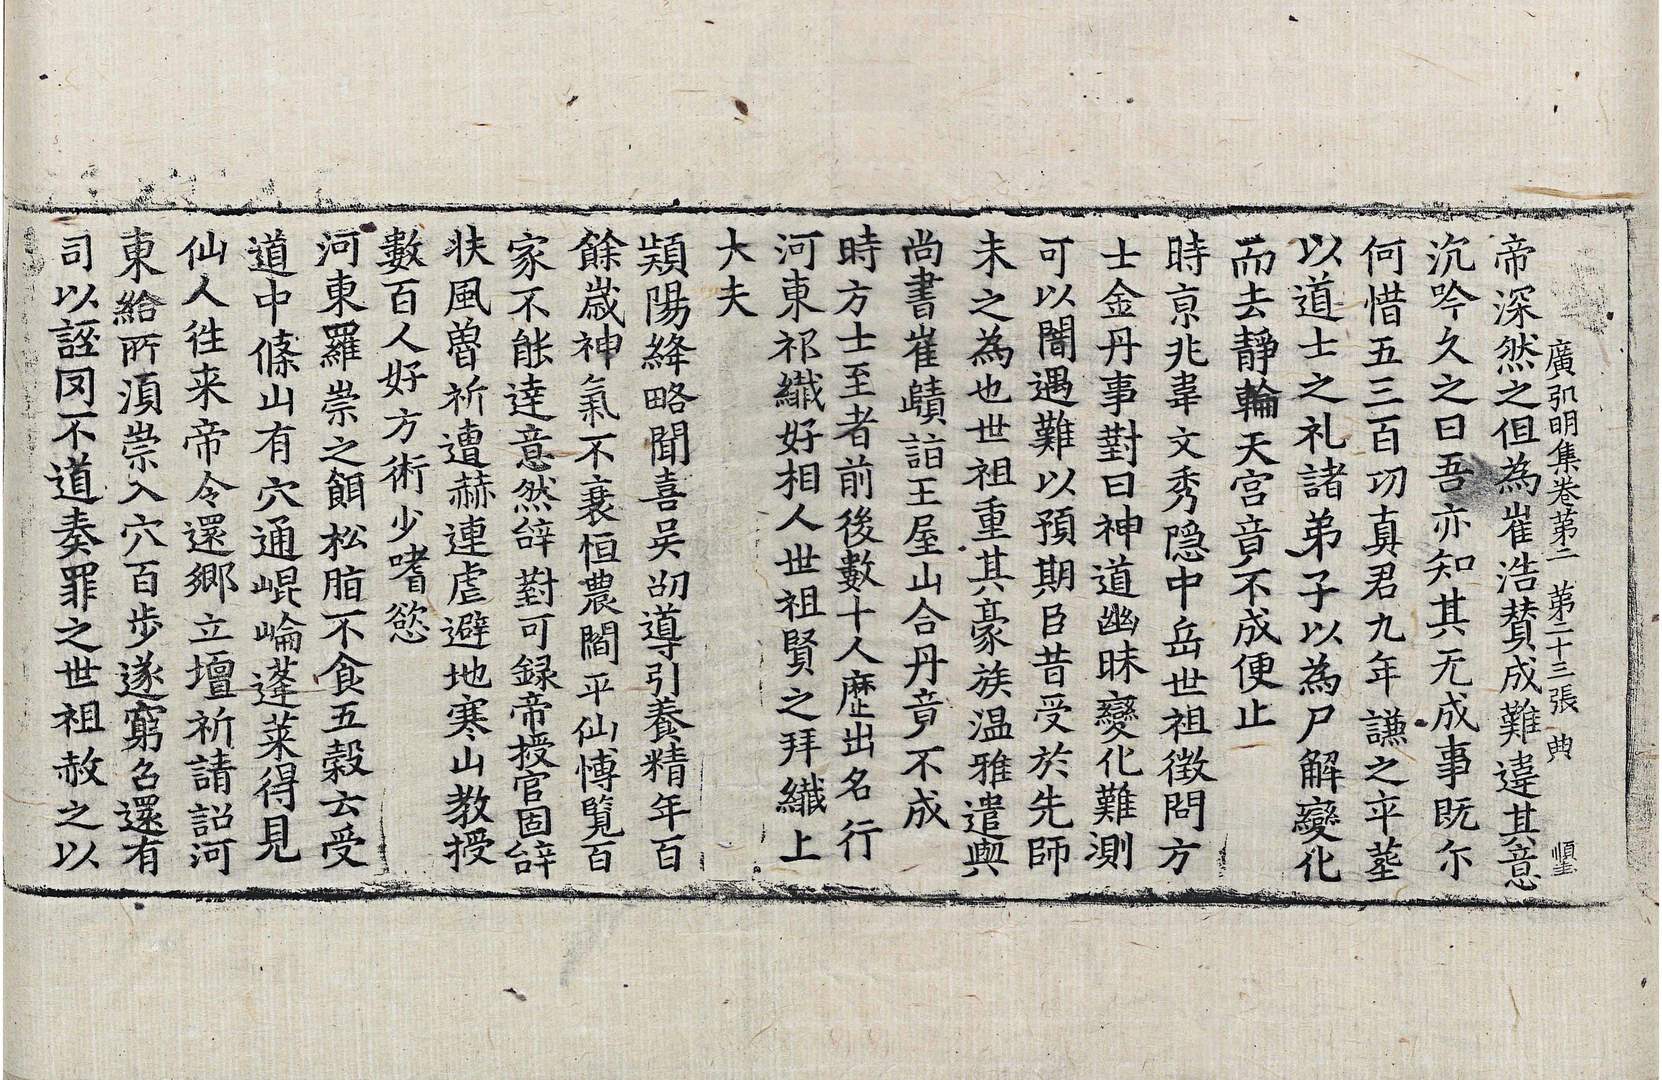 廣弘明集卷第二　第二十三張　典
帝深然之但為崔浩賛成難違其意
沉吟久之曰吾亦知其无成事既尒
何惜五三百㓛真君九年謙之卒葬
以道士之礼諸弟子以為尸解變化
而去靜輪天宮竟不成便止
時京兆韋文秀隐中岳世祖徴問方
士金丹事對曰神道幽昧變化難測
可以闇遇難以預期臣昔受於先師
未之為也世祖重其豪族温雅遣與
尚書崔賾詣王屋山合丹竟不成
時方士至者前後數十人歴出名行
河東祁纎好相人世祖賢之拜纎上
大夫
潁陽絳略聞喜吴劭導引養精年百
餘歳神氣不衰恒農閻平仙博覧百
家不能達意然辝對可録帝授官固辝
扶風魯祈遭赫連虐避地寒山教授
數百人好方術少嗜慾
河東羅崇之餌松脂不食五糓云受
道中條山有穴通崐崘蓬莱得見
仙人徃来帝令還郷立壇祈請詔河
東給所湏崇入穴百步遂窮召還有
司以誣罔不道奏罪之世祖赦之以